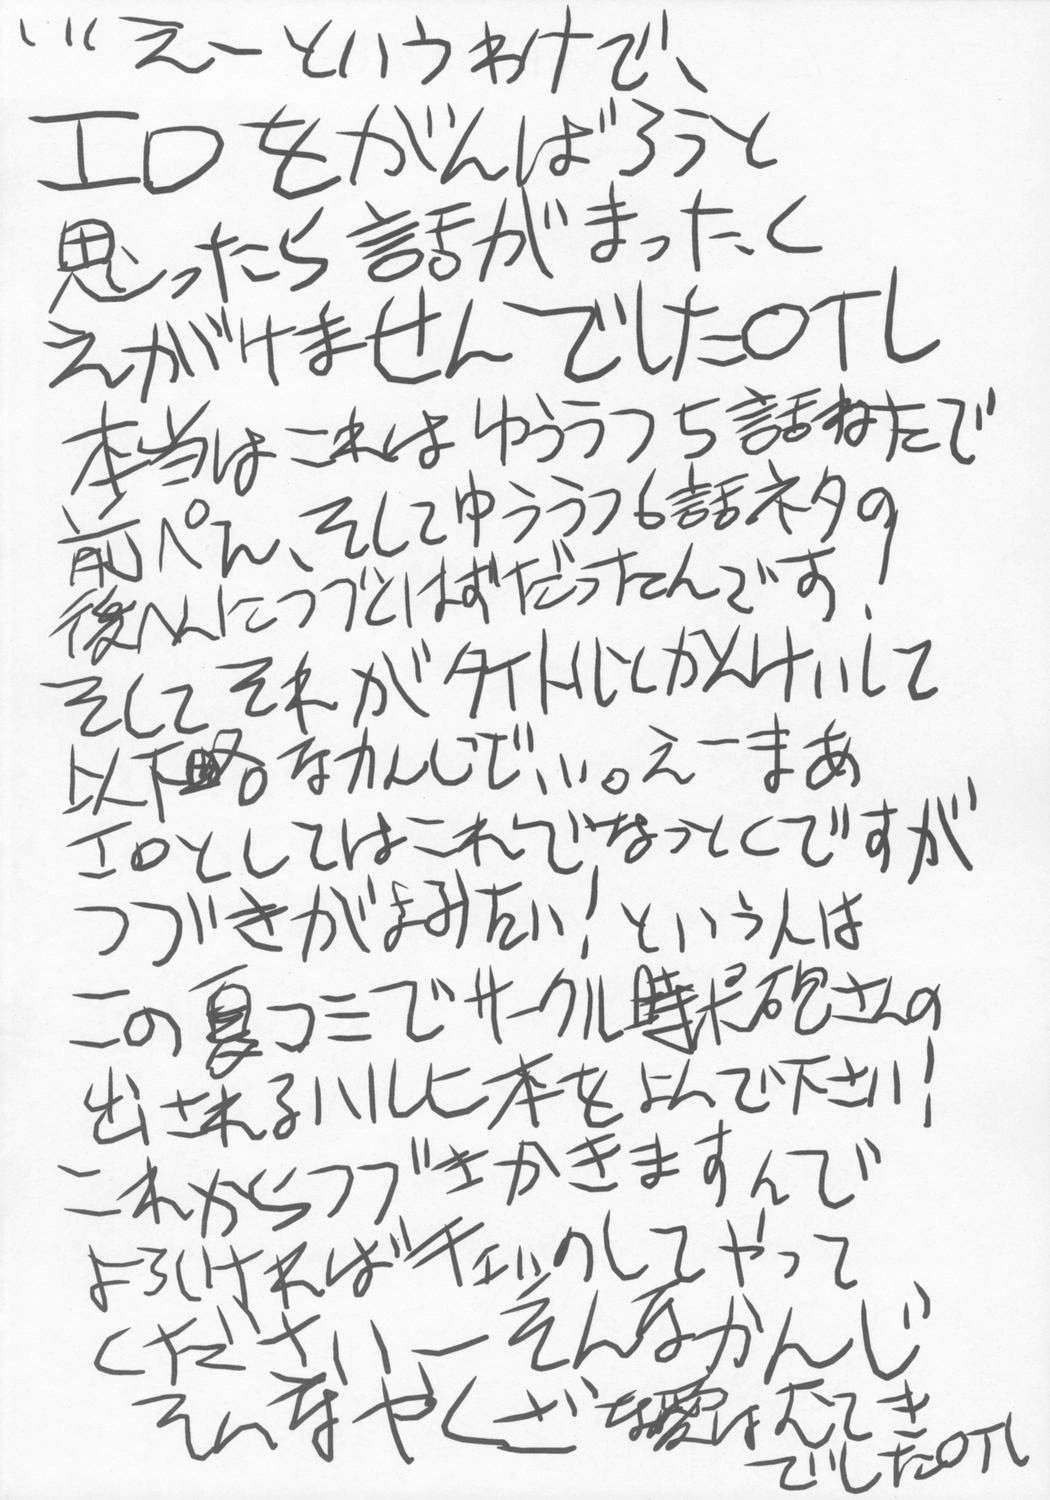 …えーというわけで、
エロをがんばろうと
思ったら話がまったく
えがけませんでしたOTL
本当はこれはゆううつ5話ねたで
前ぺん、そしてゆううつ6話ネタの
後ヘんにつづとはずだったんです!
そしてそれがタイトルとかんけいして
以下略。なかんじでいい。えーまあ
エロとしてはこれでなっとくですが
つづきがよみたい!という人は
この夏コミでサークル時末砲さんの
出されるハルヒ本をよんで下さい!
これからつづきかきますんで
よろければチェックしてやって
くださいーそんなかんじ
そんなやくざな愛はむてき
でしたOTL